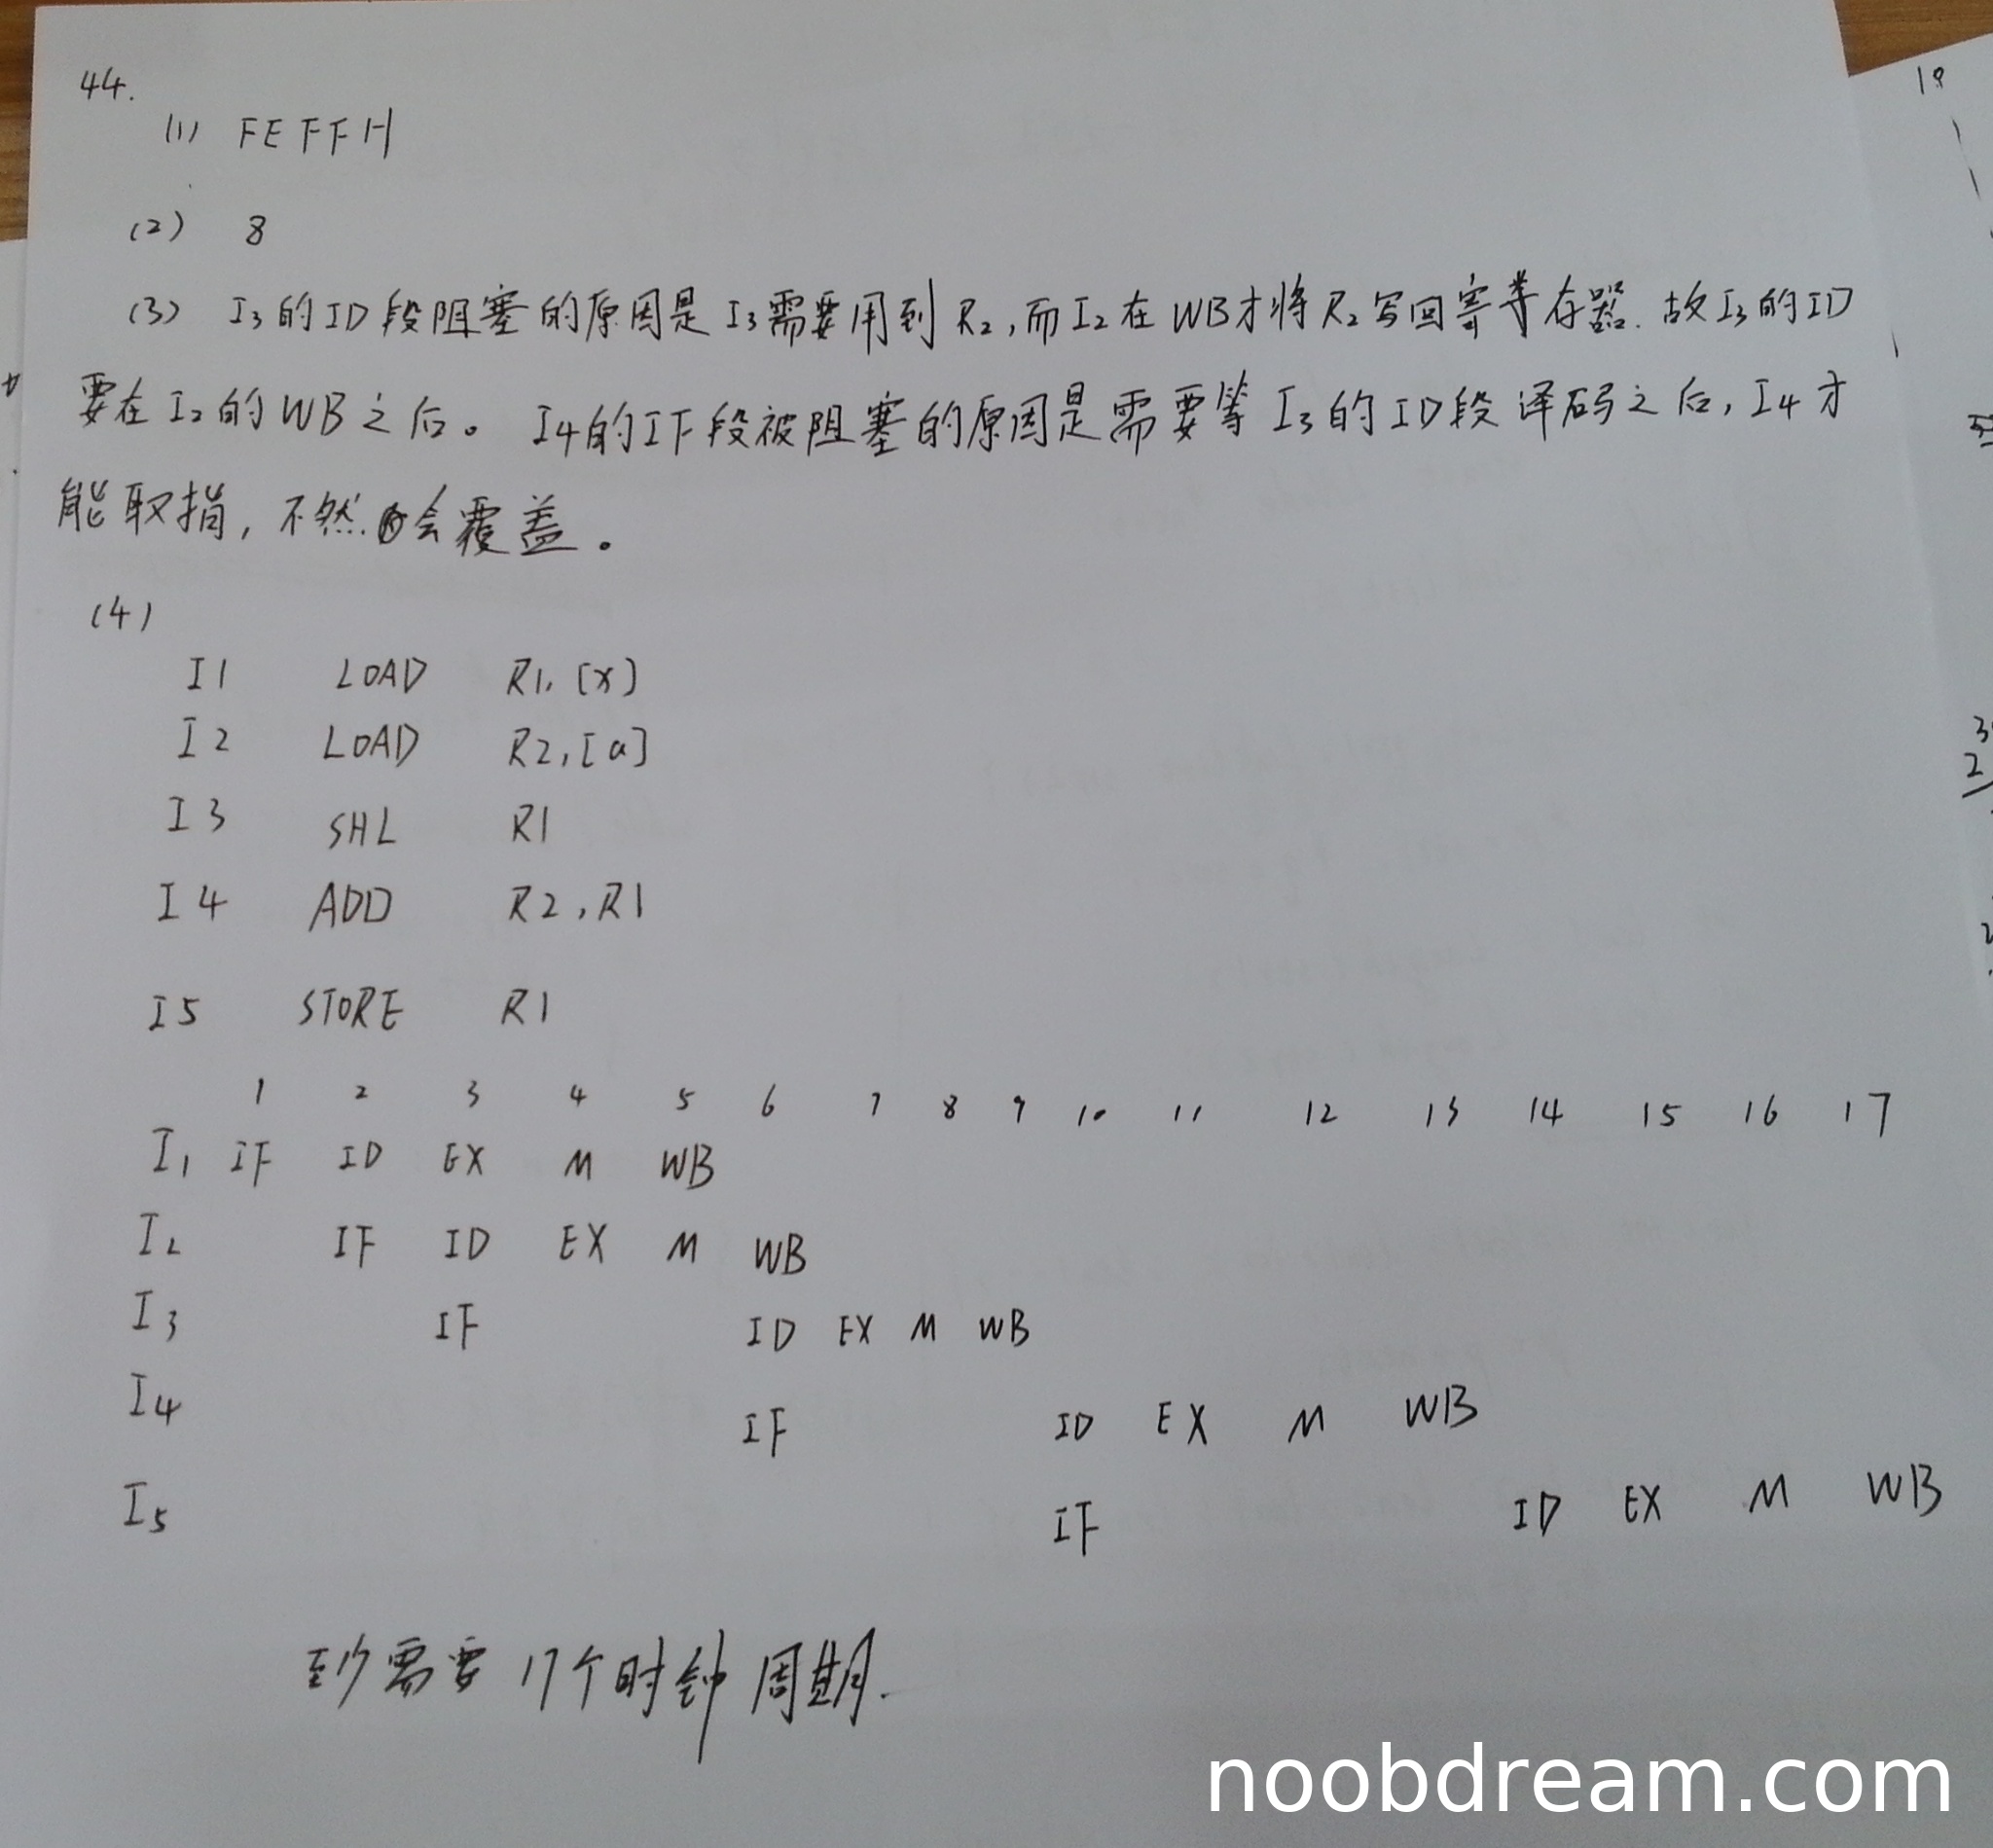 44.
(1) FEFFH
(2) 8
(3) I3的ID段阻塞的原因是I3需要用到R2,而I2在WB才将R2写回寄存器.故I3的ID
要在I2的WB之后。I4的IF段被阻塞的原因是需要等I3的ID段译码之后,I4才
能取指,不然会覆盖。
(4)
I1 LOAD R1,[x]
I2 LOAD R2,[a]
I3 SHL R1
I4 ADD R2,R1
I5 STORE R1
1 2 3 4 5 6 7 8 9 10 11 12 13 14 15 16 17
I1 IF ID EX M WB
I2 IF ID EX M WB
I3 IF ID EX M WB
I4 IF ID EX M WB
I5 IF ID EX M WB
至少需要17个时钟周期.
noobdream.com